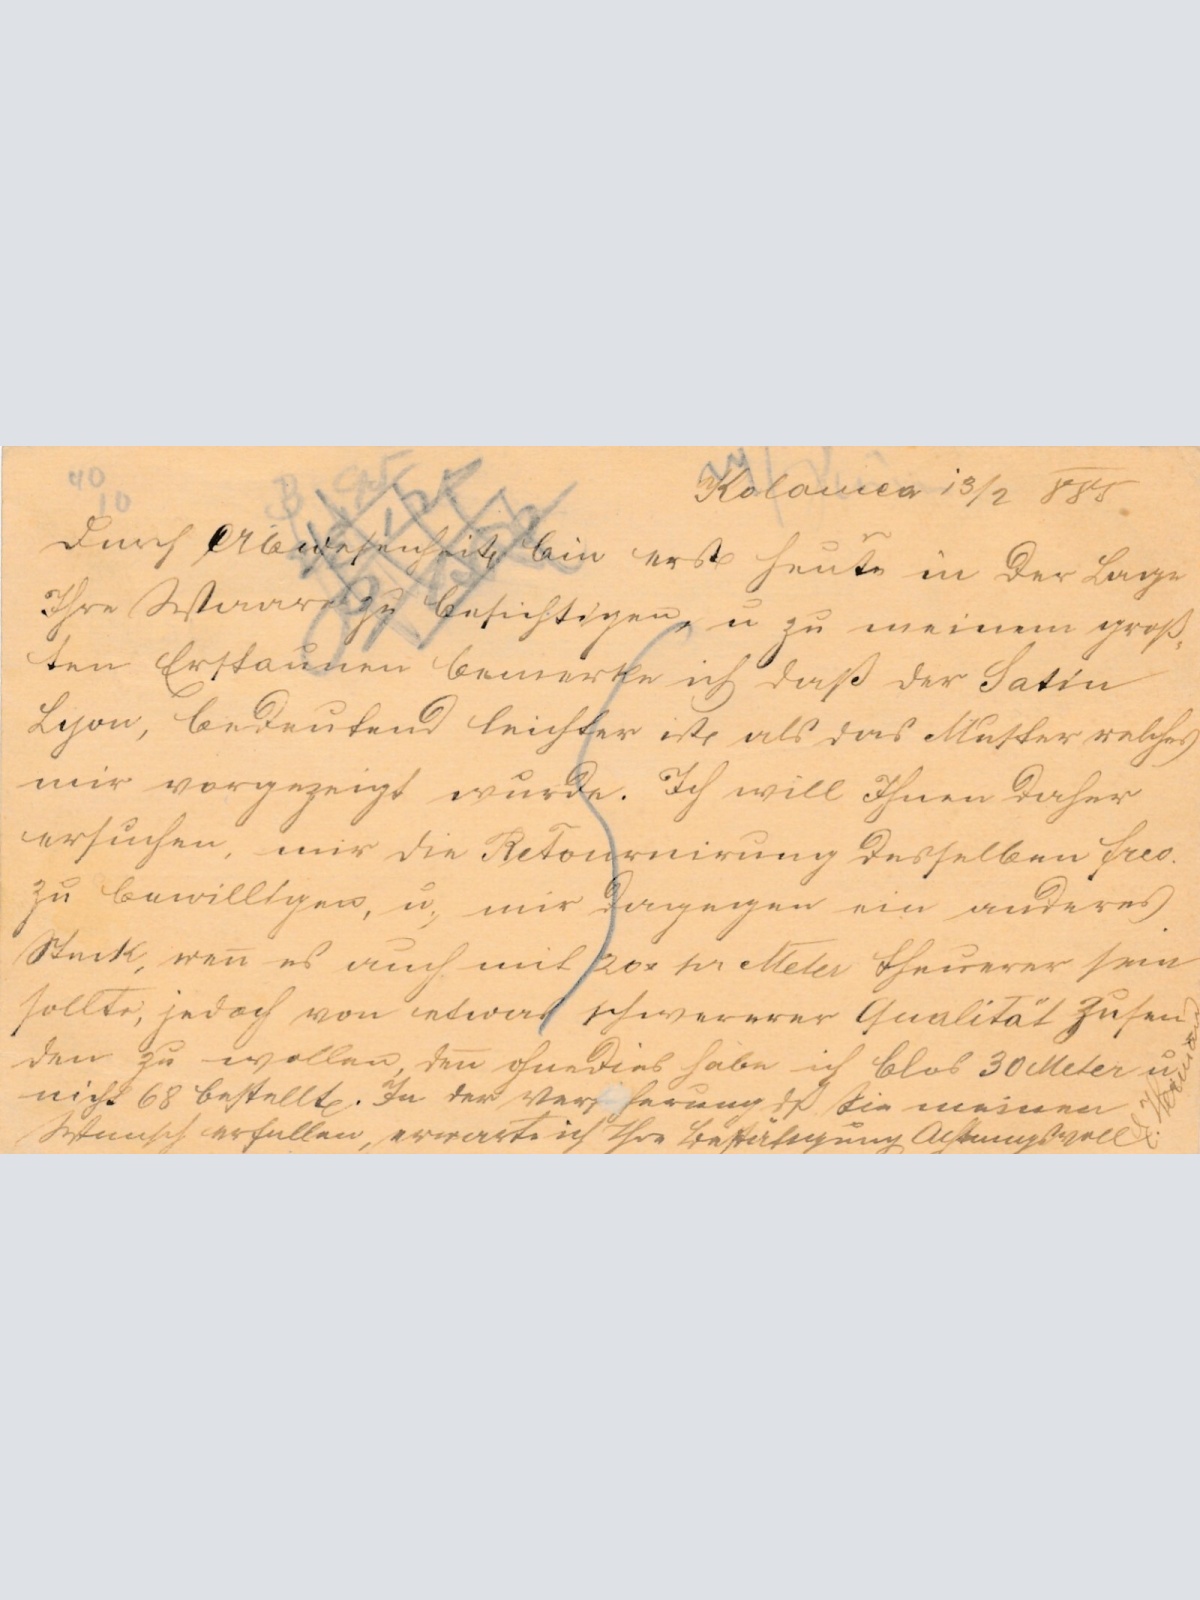 40
10
Kolomea 13/2 885
Durch Abwesenheit bin erst heute in der Lage
Ihre Waare zu besichtigen, u zu meinem groß,
ten Erstaunen bemerke ich daß der Satin
Lyon, bedeutend leichter ist als das Muster welches
mir vorgezeigt wurde. Ich will Ihnen daher
ersuchen, mir die Retournirung desselben frco.
zu bewilligen, u, mir dagegen ein anderes
Stück, weñ es auch mit 20x pr Meter theuerer sein
sollte, jedoch von etwas schwererer Qualität zusen
den zu wollen, deñ ohnedies habe ich blos 30 Meter u
nicht 68 bestellt. In der Versicherung dß Sie meinen
Wunsch erfüllen, erwarte ich Ihre Bestätigung Achtungsvoll